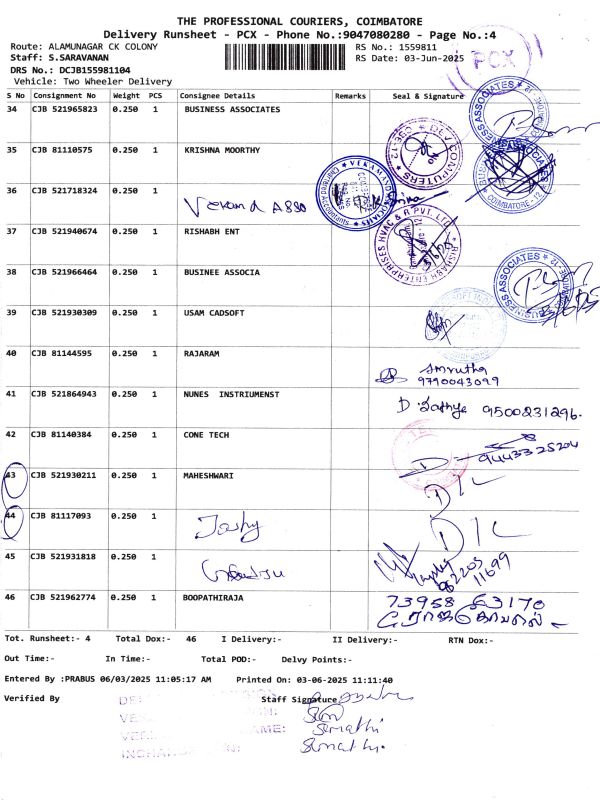 THE PROFESSIONAL COURIERS, COIMBATORE
Delivery Runsheet - PCX - Phone No.:9047080280 - Page No.:4
Route: ALAMUNAGAR CK COLONY
RS No.: 1559811
Staff: S.SARAVANAN
RS Date: 03-Jun-2025
PCX
DRS No.: DCJB155981104
Vehicle: Two Wheeler Delivery
S No Consignment No Weight PCS Consignee Details Remarks Seal & Signature
34 CJB 521965823 0.250 1 BUSINESS ASSOCIATES
35 CJB 81110575 0.250 1 KRISHNA MOORTHY
36 CJB 521718324 0.250 1
37 CJB 521940674 0.250 1 RISHABH ENT
38 CJB 521966464 0.250 1 BUSINEE ASSOCIA
39 CJB 521930309 0.250 1 USAM CADSOFT
40 CJB 81144595 0.250 1 RAJARAM
Amrutha
9790043099
41 CJB 521864943 0.250 1 NUNES INSTRIUMENST
D. Sathya 9500231296.
42 CJB 81140384 0.250 1 CONE TECH
9443325204
43 CJB 521930211 0.250 1 MAHESHWARI
D/L
44 CJB 81117093 0.250 1
D/L
45 CJB 521931818 0.250 1
46 CJB 521962774 0.250 1 BOOPATHIRAJA
73958 63170
Tot. Runsheet:- 4 Total Dox:- 46 I Delivery:- II Delivery:- RTN Dox:-
Out Time:- In Time:- Total POD:- Delvy Points:-
Entered By :PRABUS 06/03/2025 11:05:17 AM Printed On: 03-06-2025 11:11:40
Verified By Staff Signature
Sumathi
Sumathi.